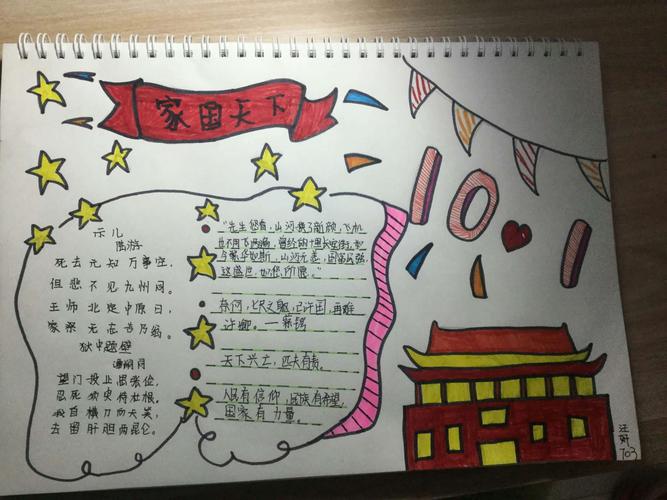 家国天下
10.1
示儿
陆游
死去元知万事空，
但悲不见九州同。
王师北定中原日，
家祭无忘告乃翁。
狱中题壁
谭嗣同
望门投止思张俭，
忍死须臾待杜根。
我自横刀向天笑，
去留肝胆两昆仑。
"先生您看，山河换了新颜，飞机
也不用飞两遍，曾经的十里长安街，
与繁华如斯，山河无恙，国富民强，
这盛世，如您所愿。"
奈何，七尺之躯，已许国，再难
许卿。——蒋锡
天下兴亡，匹夫有责。
人民有信仰，民族有希望，
国家有力量。
汪妍
703